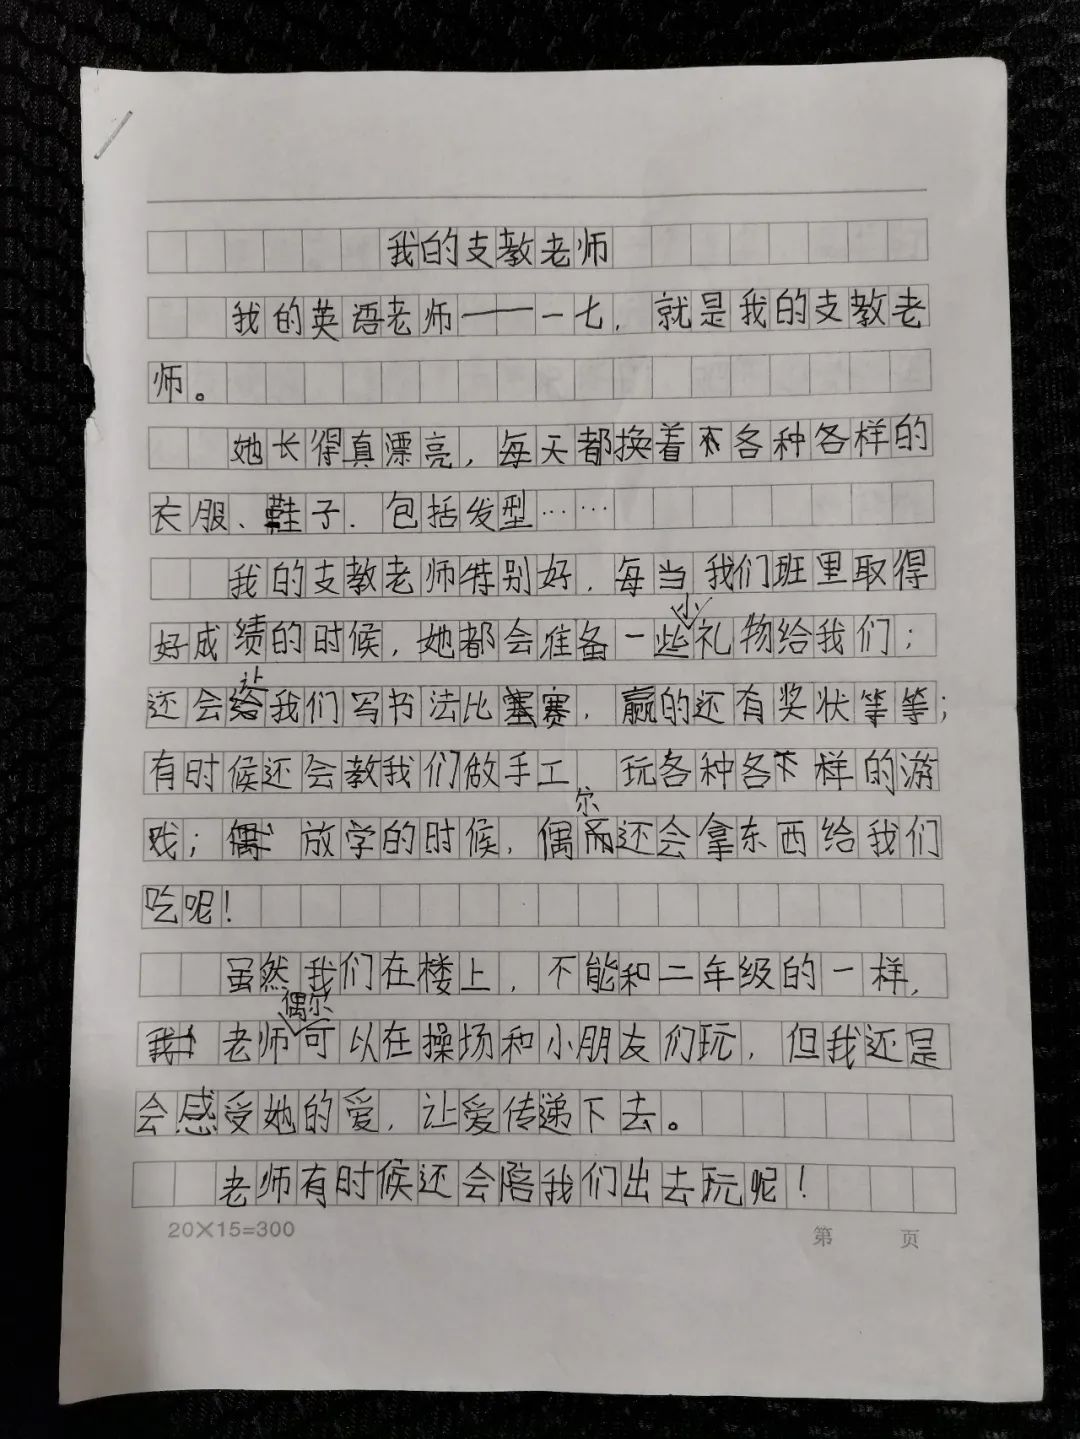 我的支教老师
我的英语老师——一七，就是我的支教老
师。
她长得真漂亮，每天都换着各种各样的
衣服、鞋子．包括发型……
我的支教老师特别好．每当我们班里取得
好成绩的时候，她都会准备一些小礼物给我们；
还会让我们写书法比赛．赢的还有奖状等等；
有时候还会教我们做手工 玩各种各样的游
戏；放学的时候，偶尔还会拿东西给我们
吃呢！
虽然我们在楼上，不能和二年级的一样，
老师偶尔可以在操场和小朋友们玩，但我还是
会感受她的爱，让爱传递下去。
老师有时候还会陪我们出去玩呢！
20×15=300
第 页